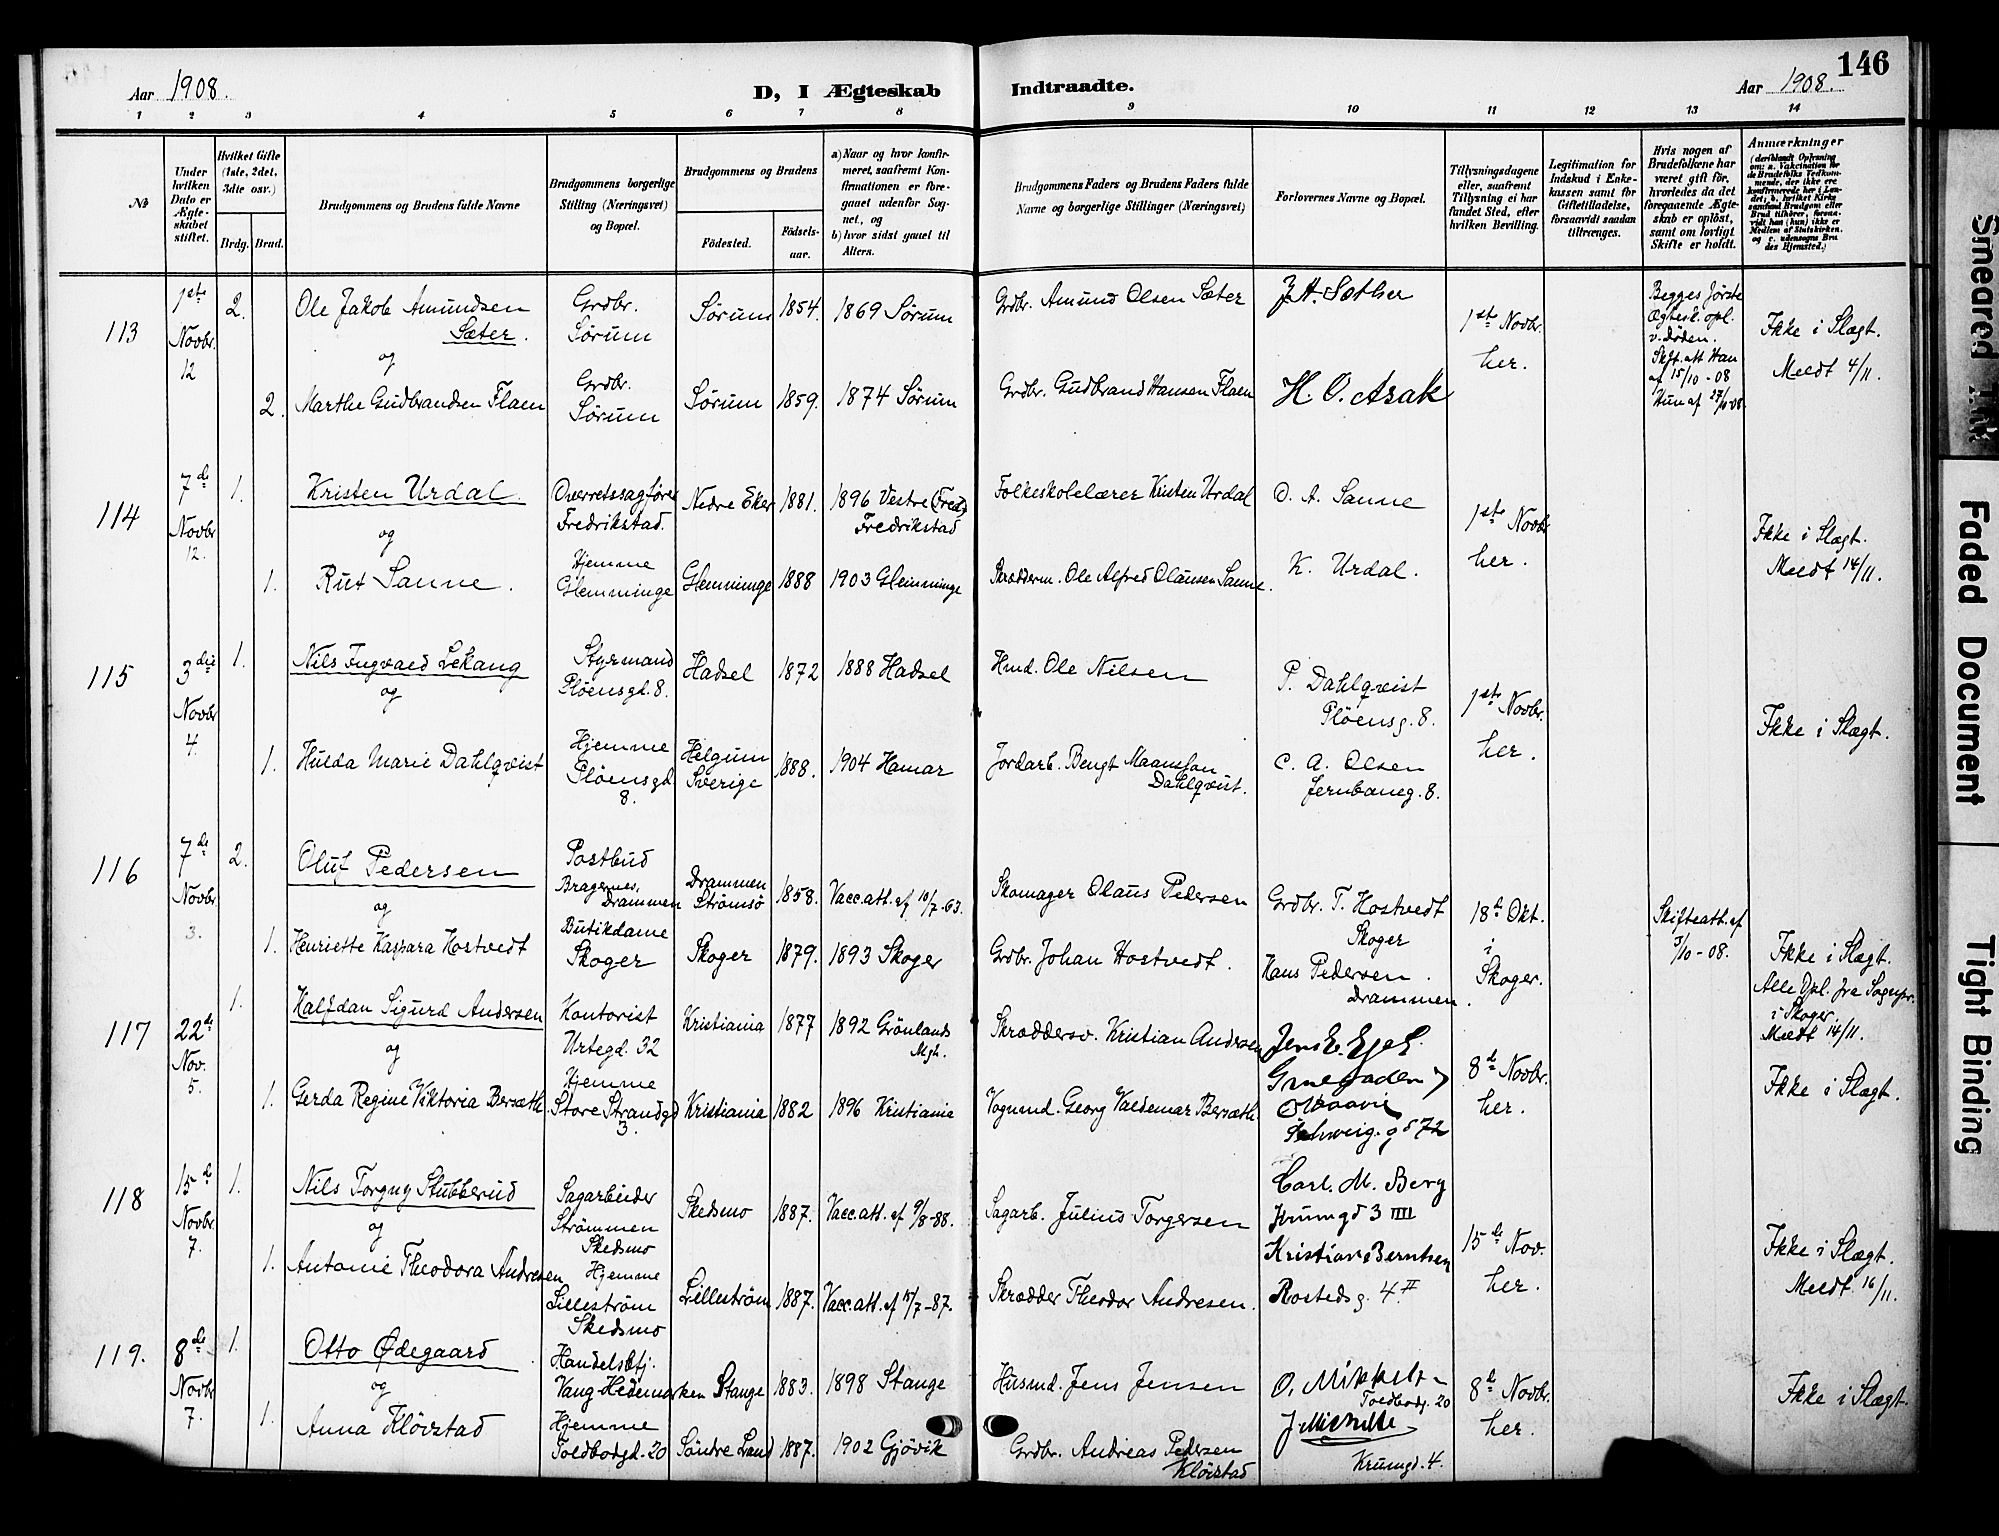 146
Aar 1908.
D, I Ægteskab Indtraadte.
Aar 1908.
1 2 3 4 5 6 7 8 9 10 11 12 13 14
№
Under hvilken Dato er Ægteskabet stiftet.
Hvilket Gifte (1ste, 2det, 3die osv.)
Brdg. Brud.
Brudgommens og Brudens fulde Navne
Brudgommens borgerlige Stilling (Næringsvei) og Bopæl.
Brudgommens og Brudens
Födested. Födselsaar.
a) Naar og hvor konfirmeret, saafremt Konfirmationen er foregaaet udenfor Sognet, og
b) hvor sidst gaaet til Alters.
Brudgommens Faders og Brudens Faders fulde Navne og borgerlige Stillinger (Næringsvei)
Forlovernes Navne og Bopæl.
Tillysningsdagene eller, saafremt Tillysning ei har fundet Sted, efter hvilken Bevilling.
Legitimation for Indskud i Enkekassen samt for Giftetilladelse, forsaavidt saadan tiltrænges.
Hvis nogen af Brudefolkene har været gift för, hvorledes da det foregaaende Ægteskab er oplöst, samt om lovligt Skifte er holdt.
Anmærkninger
(deriblandt Oplysning om: a. Vakcination for de Brudefolks Vedkommende, der ikke ere konfirmerede her i Landet; b. hvilket Kirkesamfund Brudgom eller Brud tilhörer, forsaavidt han (hun) ikke er Medlem af Statskirken, og c. udensogns Brudes Hjemsted.)
113
1ste Novbr. 12
2. Ole Jakob Amundsen Sæter.
Grdbr. Sørum
Sørum 1854. 1869 Sørum
Grdbr. Amund Olsen Sæter
J. A. Sæther
1ste Novbr. her.
Begges første Ægtesk. opl. v. døden. Skft. att. Han af 15/10-08 Hun af 27/10-08
Ikke i Slægt. Meldt 4/11.
og
2. Marthe Gudbrandsen Flaen
Grdbr. Sørum
Sørum 1859. 1874 Sørum
Grdbr. Gudbrand Hansen Flaen
H. O. Asak
114
7de Novbr 12.
1. Kristen Urdal.
Overretssagfører Fredrikstad.
Nedre Eker 1881. 1896 Vestre (Fred) Fredrikstad
Folkeskolelærer Kristen Urdal
O. A. Sanne
1ste Novbr her.
Ikke i Slægt. Meldt 14/11.
og
1. Rut Sanne.
Hjemme Glemminge
Glemminge 1888 1903 Glemminge
Skrædderm. Ole Alfred Olausen Sanne.
K. Urdal.
115
3die Novbr 4.
1. Nils Ingvald Lekang
Styrmand Pløensgd. 8.
Hadsel 1872 1888 Hadsel
Hmd. Ole Nilsen
P. Dahlqvist Pløensg. 8.
1ste Novbr. her.
Ikke i Slægt.
og
1. Hulda Marie Dahlqvist
Hjemme Pløensgd 8.
Helgum Sverige 1888. 1904 Hamar
Jordarb. Bengt Maansson Dahlqvist.
C. A. Olsen Jernbaneg. 8.
116
7de Novbr. 3.
2. Oluf Pedersen
Postbud Bragernes, Drammen
Drammen Strømsø 1858. Vacc. att. af 10/7-63.
Skomager Olaus Pedersen
Grdbr. T. Hostvedt Skoger
18de Okt. i Skoger.
Skifteatt. af 3/10-08.
Ikke i Slægt. Alle Opl. fra Sognepr. i Skoger. Meldt 14/11.
og
1. Henriette Kaspara Hostvedt
Butikdame Skoger
Skoger 1879. 1893 Skoger
Grdbr. Johan Hostvedt.
Hans Pedersen. Drammen.
117
22de Nov. 5.
1. Halfdan Sigurd Andersen
Kontorist Urtegd. 32
Kristiania 1877 1892 Grönlands Mgh.
Skræddersv. Kristian Andersen
8de Novbr. her.
Ikke i Slægt.
og
1. Gerda Regine Viktoria Bersæth.
Hjemme Store Strandgd 3.
Kristiania 1882 1896 Kristiania
Vognmd. Georg Valdemar Bersæth.
Schweig. gd 72
118
15de Novbr. 7.
1. Nils Torgny Stubberud
Sagarbeider Strømmen Skedsmo
Skedsmo 1887. Vacc. att. af 9/8-88.
Sagarb. Julius Torgersen
Carl. M. Berg Krumgd 3 IIII
15de Nov. her.
Ikke i Slægt. Meldt. 16/11.
og
1. Antonie Theodora Andresen
Hjemme Lillestrøm Skedsmo
Lillestrøm 1887. Vacc. att. af 15/7-87.
Skrædder Theodor Andresen.
Kristian Berntsen Rostedsg. 4. II
119.
8de Novbr 7.
1. Otto Ødegaard.
Handelsbtj. Vang Hedemarken
Stange 1883. 1898 Stange
Husmd. Jens Jensen
O. Mikkels Toldbodg. 20
8de Novbr. her.
Ikke i Slægt.
og
1. Anna Kløvstad
Hjemme Toldbodgd. 20
Søndre Land 1887. 1902 Gjøvik
Grdbr. Andreas Pedersen Kløvstad
Krumgd. 4.
Smeared Ink
Faded Document
Tight Binding